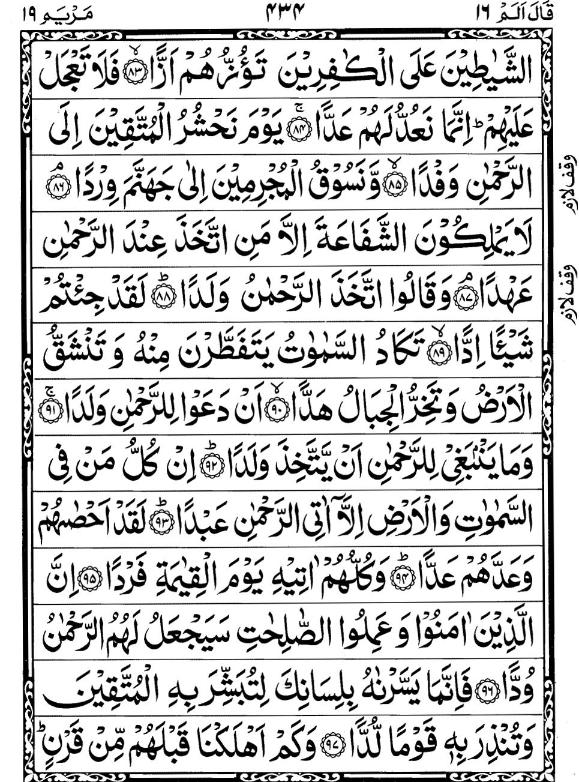 قَالَ اَلَمْ ١٦
٤٣٤
مَرْيَم ١٩
الشَّيٰطِيْنَ عَلَى الْكٰفِرِيْنَ تَؤُزُّهُمْ اَزًّا ۙ﴿٨٣﴾ فَلَا تَعْجَلْ
عَلَيْهِمْ ؕ اِنَّمَا نَعُدُّ لَهُمْ عَدًّا ۚ﴿٨٤﴾ يَوْمَ نَحْشُرُ الْمُتَّقِيْنَ اِلَى
الرَّحْمٰنِ وَفْدًا ۙ﴿٨٥﴾ وَّنَسُوْقُ الْمُجْرِمِيْنَ اِلٰى جَهَنَّمَ وِرْدًا ۘ﴿٨٦﴾
وقف لازم
لَا يَمْلِكُوْنَ الشَّفَاعَةَ اِلَّا مَنِ اتَّخَذَ عِنْدَ الرَّحْمٰنِ
عَهْدًا ۘ﴿٨٧﴾ وَقَالُوا اتَّخَذَ الرَّحْمٰنُ وَلَدًا ؕ﴿٨٨﴾ لَقَدْ جِئْتُمْ
وقف لازم
شَيْـًٔا اِدًّا ۙ﴿٨٩﴾ تَكَادُ السَّمٰوٰتُ يَتَفَطَّرْنَ مِنْهُ وَتَنْشَقُّ
الْاَرْضُ وَتَخِرُّ الْجِبَالُ هَدًّا ۙ﴿٩٠﴾ اَنْ دَعَوْا لِلرَّحْمٰنِ وَلَدًا ۚ﴿٩١﴾
وَمَا يَنْۢبَغِيْ لِلرَّحْمٰنِ اَنْ يَّتَّخِذَ وَلَدًا ؕ﴿٩٢﴾ اِنْ كُلُّ مَنْ فِى
السَّمٰوٰتِ وَالْاَرْضِ اِلَّاۤ اٰتِى الرَّحْمٰنِ عَبْدًا ؕ﴿٩٣﴾ لَقَدْ اَحْصٰىهُمْ
وَعَدَّهُمْ عَدًّا ؕ﴿٩٤﴾ وَكُلُّهُمْ اٰتِيْهِ يَوْمَ الْقِيٰمَةِ فَرْدًا ﴿٩٥﴾ اِنَّ
الَّذِيْنَ اٰمَنُوْا وَعَمِلُوا الصّٰلِحٰتِ سَيَجْعَلُ لَهُمُ الرَّحْمٰنُ
وُدًّا ﴿٩٦﴾ فَاِنَّمَا يَسَّرْنٰهُ بِلِسَانِكَ لِتُبَشِّرَ بِهِ الْمُتَّقِيْنَ
وَتُنْذِرَ بِهٖ قَوْمًا لُّدًّا ﴿٩٧﴾ وَكَمْ اَهْلَكْنَا قَبْلَهُمْ مِّنْ قَرْنٍ ؕ